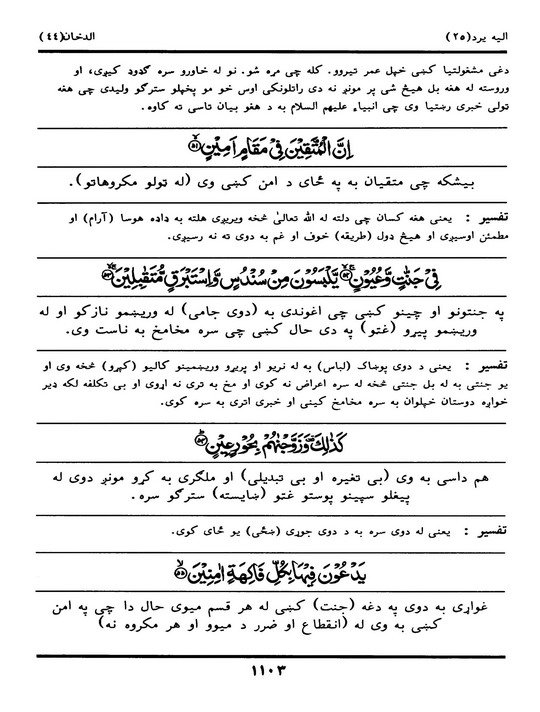 الیه یرد(۲۵) الدخان(۴۴)
دغی مشغولتیا کښی خپل عمر تیروو. کله چی مړه شو. نو له خاورو سره ګډوډ کیږی، او
وروسته له هغه بل هیڅ شی پر مونږ نه دی راتلونکی اوس خو مو پخپلو سترګو ولیدی چی هغه
ټولی خبری رښتیا وی چی انبیاء علیهم السلام به د هغو بیان تاسی ته کاوه.
اِنَّ الْمُتَّقِيْنَ فِىْ مَقَامٍ اَمِيْنٍ ۵۱
بیشکه چی متقیان به په ځای د امن کښی وی (له ټولو مکروهاتو).
تفسیر : یعنی هغه کسان چی دلته له الله تعالیٰ څخه ویریږی هلته به ډاډه هوسا (آرام) او
مطمئن اوسیږی او هیڅ ډول (طریقه) خوف او غم به دوی ته نه رسیږی.
فِىْ جَنّٰتٍ وَّعُيُوْنٍ ۵۲ يَّلْبَسُوْنَ مِنْ سُنْدُسٍ وَّاِسْتَبْرَقٍ مُّتَقٰبِلِيْنَ ۵۳
په جنتونو او چینو کښی چی اغوندی به (دوی جامی) له وریښمو نازکو او له
وریښمو پیړو (غټو) په دی حال کښی چی سره مخامخ به ناست وی.
تفسیر : یعنی د دوی پوښاک (لباس) به له نریو او پریړو وریښمینو کالیو (کپړو) څخه وی او
یو جنتی به له بل جنتی څخه له سره اعراض نه کوی او مخ به تری نه اړوی او بی تکلفه لکه ډیر
خواږه دوستان خپلوان به سره مخامخ کینی او خبری اتری به سره کوی.
كَذٰلِكَ وَزَوَّجْنٰهُمْ بِحُوْرٍ عِيْنٍ ۵۴
هم داسی به وی (بی تغیره او بی تبدیلی) او ملګری به کړو مونږ دوی له
پیغلو سپینو پوستو غټو (ښایسته) سترګو سره.
تفسیر : یعنی له دوی سره به د دوی جوړی (ښځی) یو ځای کوی.
يَدْعُوْنَ فِيْهَا بِكُلِّ فَاكِهَةٍ اٰمِنِيْنَ ۵۵
غواړی به دوی په دغه (جنت) کښی له هر قسم میوی حال دا چی په امن
کښی به وی له (انقطاع او ضرر د میوو او هر مکروه نه)
۱۱۰۳